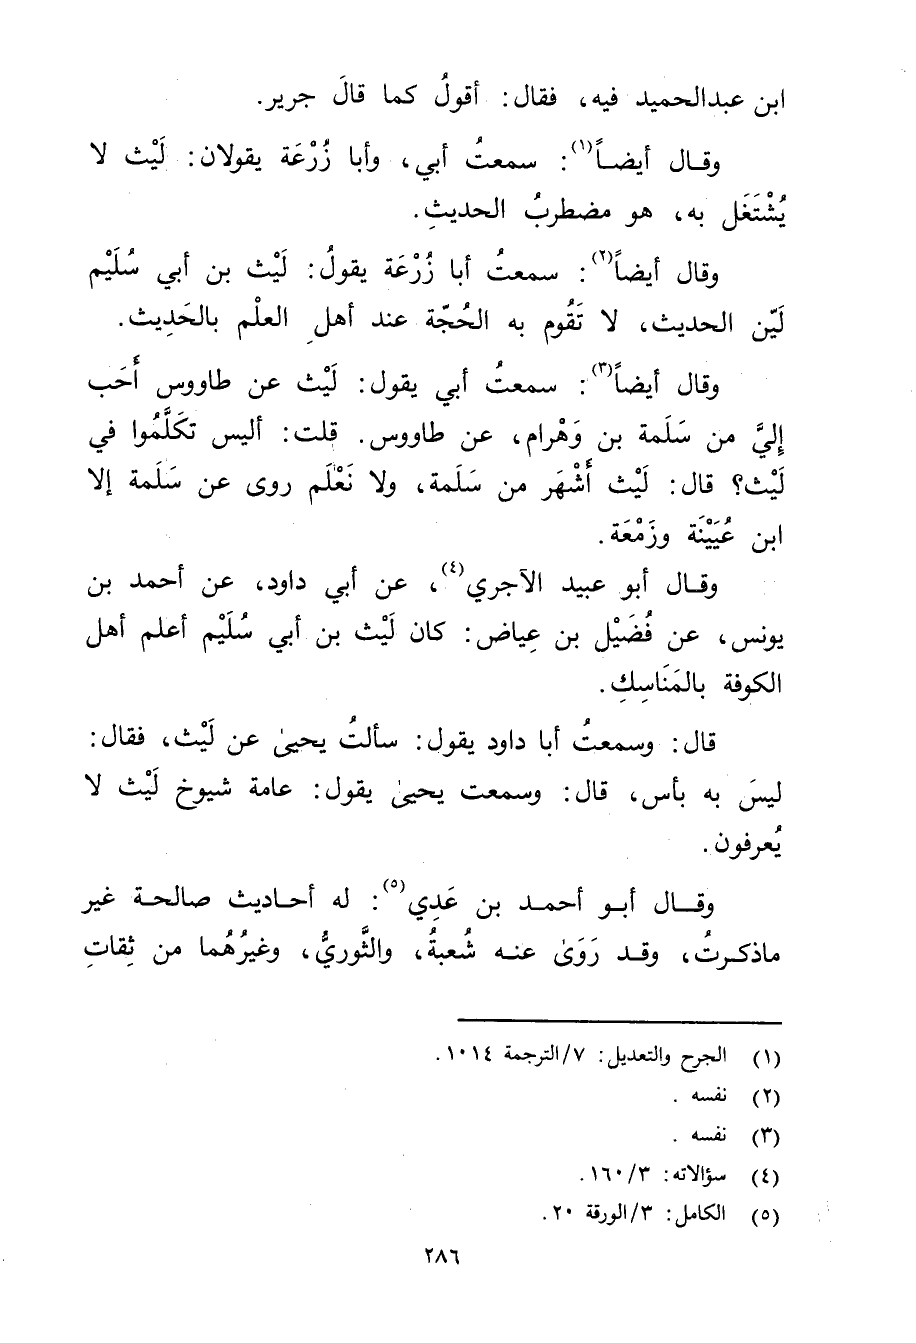 ابن عبدالحميد فيه، فقال: أقولُ كما قالَ جرير.
وقال أيضاً(١): سمعتُ أبي، وأبا زُرْعَة يقولان: لَيْث لا
يُشْتَغَل به، هو مضطربُ الحديثِ.
وقال أيضاً(٢): سمعتُ أبا زُرْعَة يقولُ: لَيْث بن أبي سُلَيْم
لَيّن الحديث، لا تَقُوم به الحُجّة عند أهلِ العلْم بالحَدِيث.
وقال أيضاً(٣): سمعتُ أبي يقول: لَيْث عن طاووس أَحَب
إليَّ من سَلَمة بن وَهْرام، عن طاووس. قلت: أليس تكَلَّمُوا في
لَيْث؟ قال: لَيْث أَشْهَر من سَلَمة، ولا نَعْلَم روى عن سَلَمة إلا
ابن عُيَيْنَة وزَمْعَة.
وقال أبو عبيد الآجري(٤)، عن أبي داود، عن أحمد بن
يونس، عن فُضَيْل بن عِياض: كان لَيْث بن أبي سُلَيْم أعلم أهل
الكوفة بالمَنَاسِكِ.
قال: وسمعتُ أبا داود يقول: سألتُ يحيىٰ عن لَيْث، فقال:
ليسَ به بأس، قال: وسمعت يحيىٰ يقول: عامة شيوخ لَيْث لا
يُعرفون.
وقال أبو أحمد بن عَدِي(٥): له أحاديث صالحة غير
ماذكرتُ، وقد رَوَىٰ عنه شُعبةُ، والثَّوريُّ، وغيرُهُما من ثِقاتِ
(١) الجرح والتعديل: ٧/الترجمة ١٠١٤.
(٢) نفسه .
(٣) نفسه .
(٤) سؤالاته: ٣/١٦٠.
(٥) الكامل: ٣/الورقة ٢٠.
٢٨٦